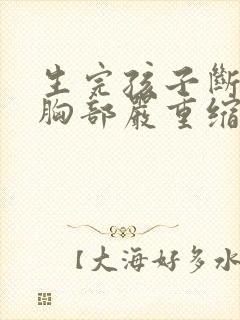 生完孩子斷
胸部嚴重縮
【大海好多水